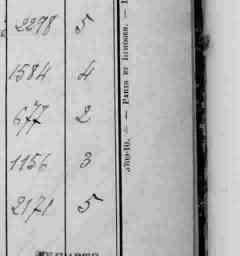 2298 5
1584 4
677 2
1156 3
2171 5
5709-10. — — PARIS ET LIMOGES. —